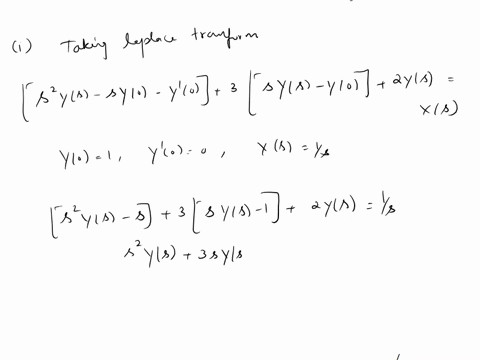 (1) Taking leplace transform
[s²Y(s) - sY(0) - Y'(0)] + 3 [sY(s) - Y(0)] + 2Y(s) =
X(s)
Y(0) = 1, Y'(0) = 0, X(s) = 1/s
[s²Y(s) - s] + 3 [sY(s) - 1] + 2Y(s) = 1/s
s²Y(s) + 3sY(s